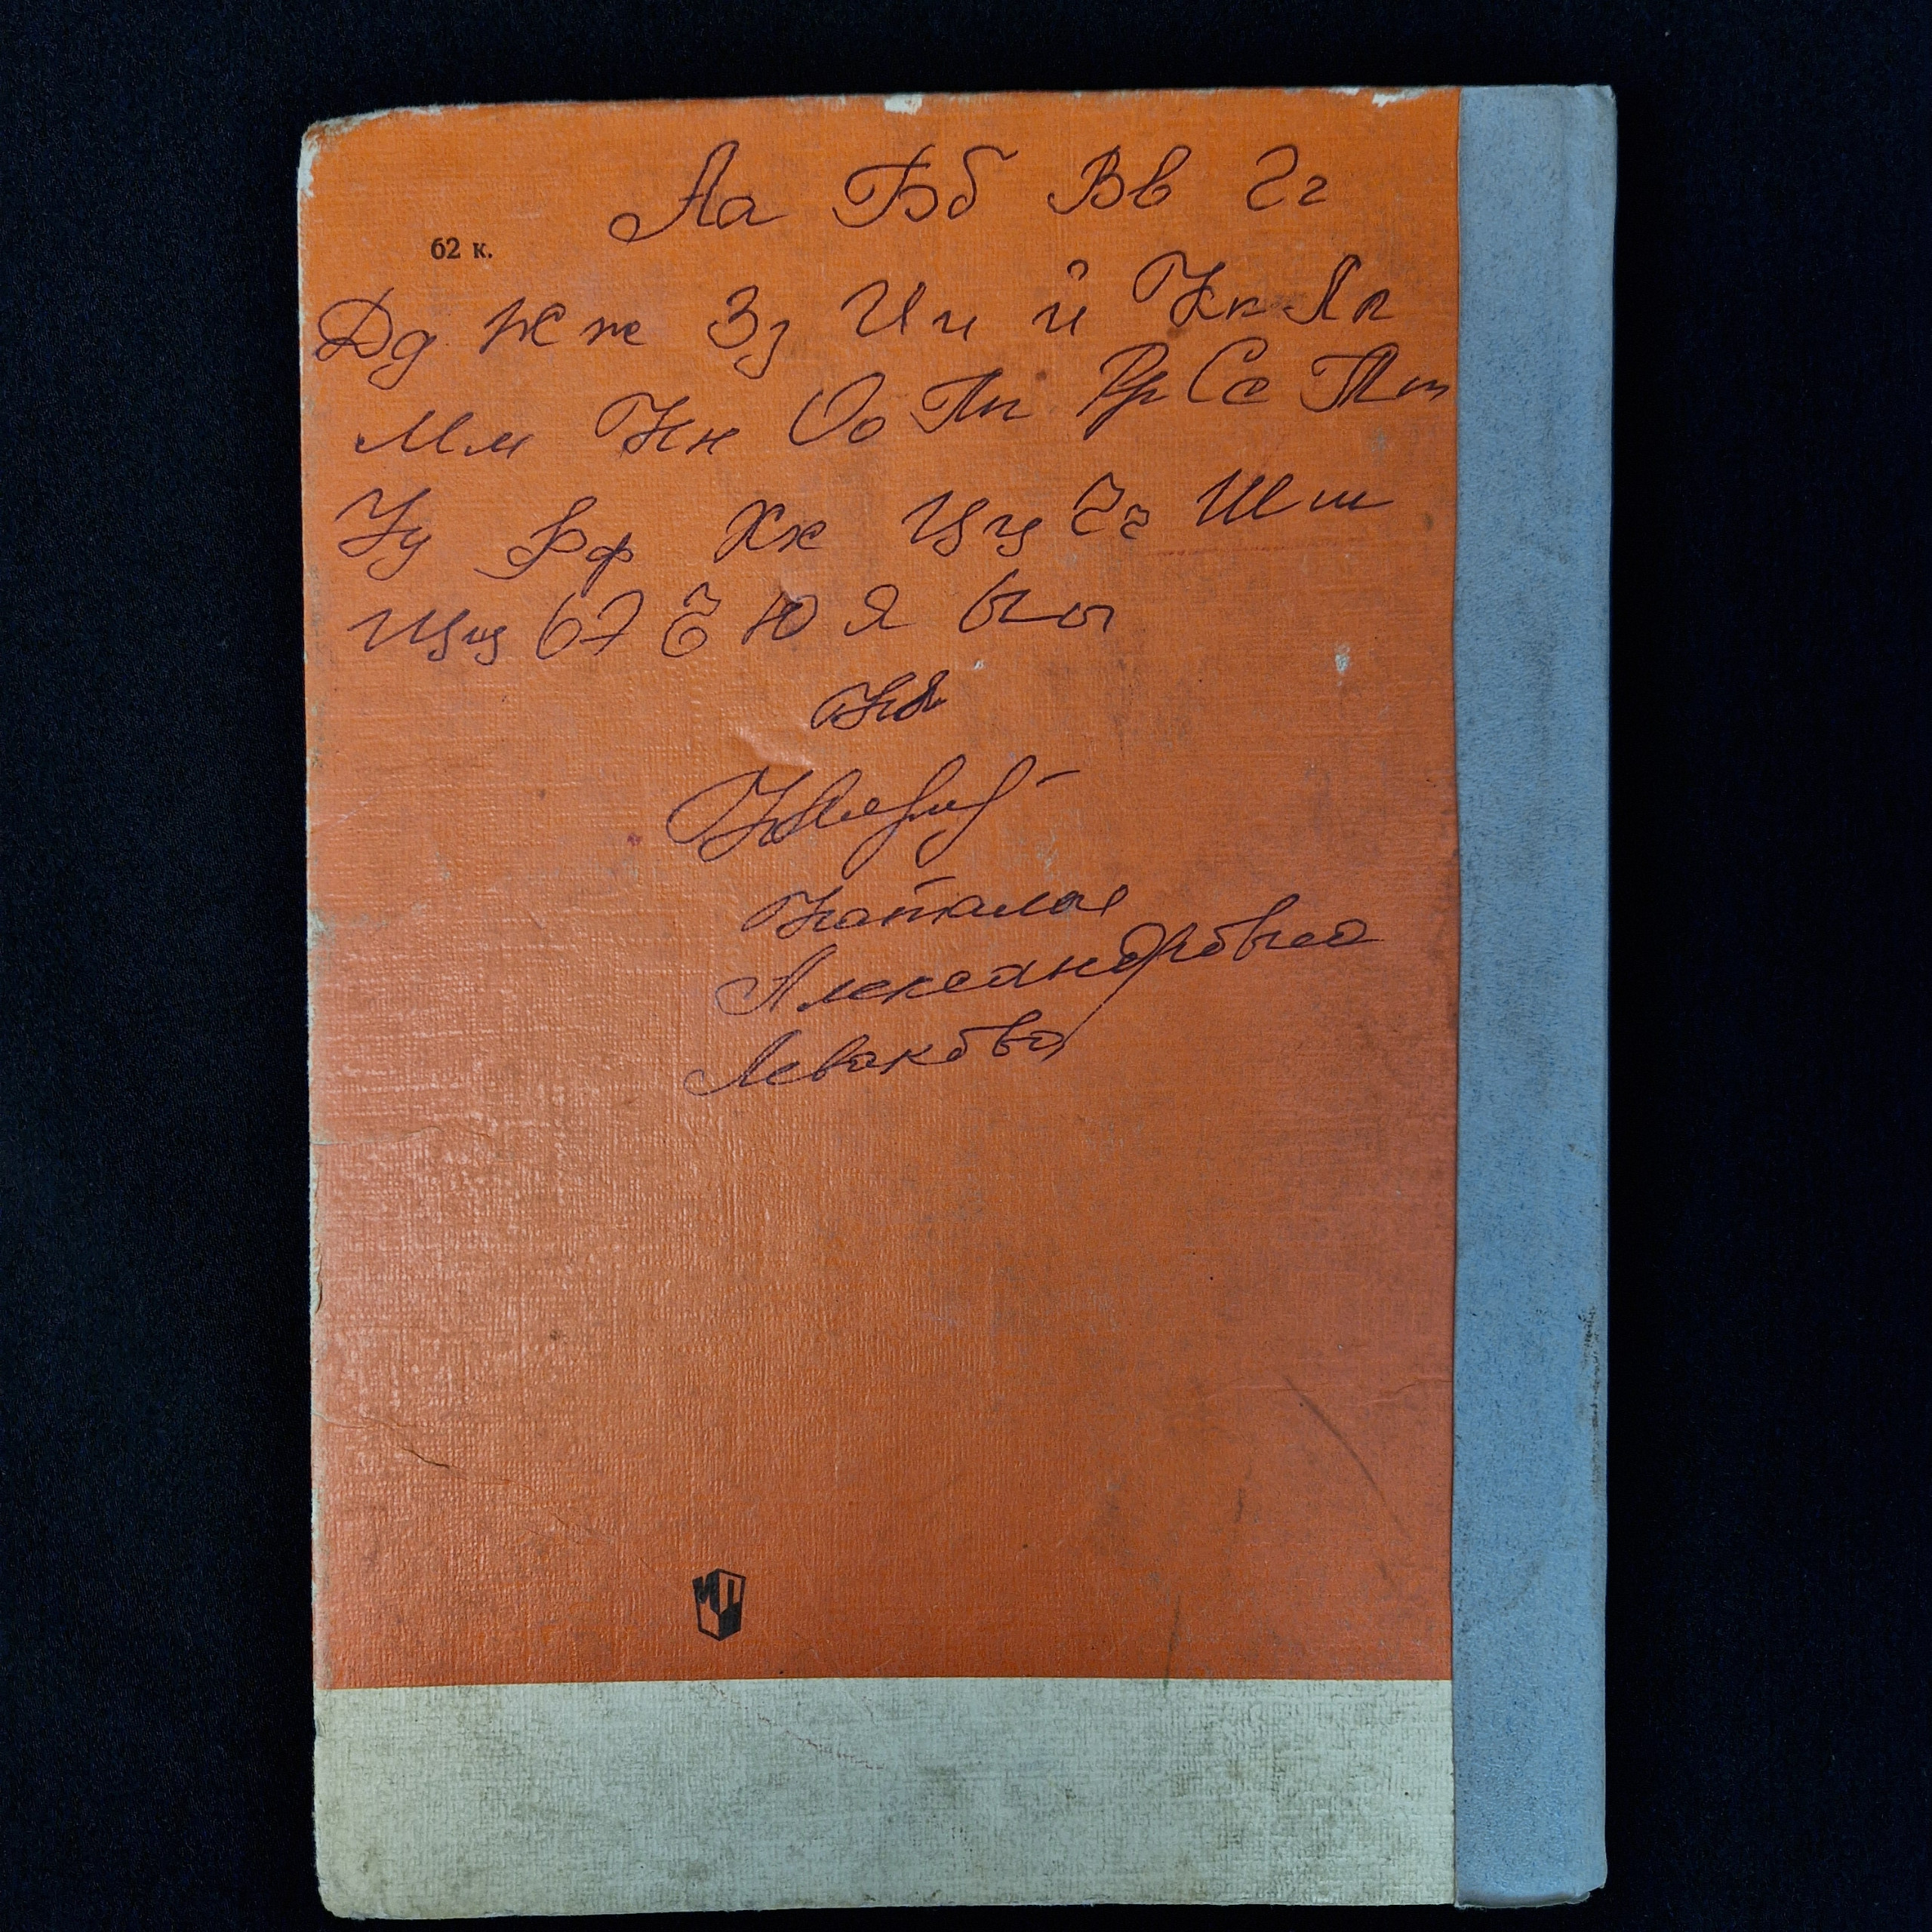 Аа Бб Вв Гг
62 к.
Дд Жж Зз Ии й Кк Лл
Мм Нн Оо Пп Рр Сс Тт
Уу Фф Хх Цц Чч Шш
Щщ ь э ё Ю Я Ы ы
Наталья
Александровна
Левакова